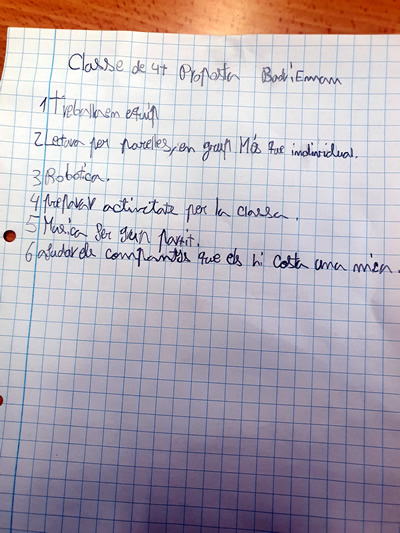 Classe de 4t Proposta Badr i Emnam
1 Treballar em equip
2 Letura per parelles, en grup Més que individual.
3 Robotica.
4 preparar activetats per la classa.
5 Musica ser gran partit.
6 ajudar els companys que els hi costa una mica.